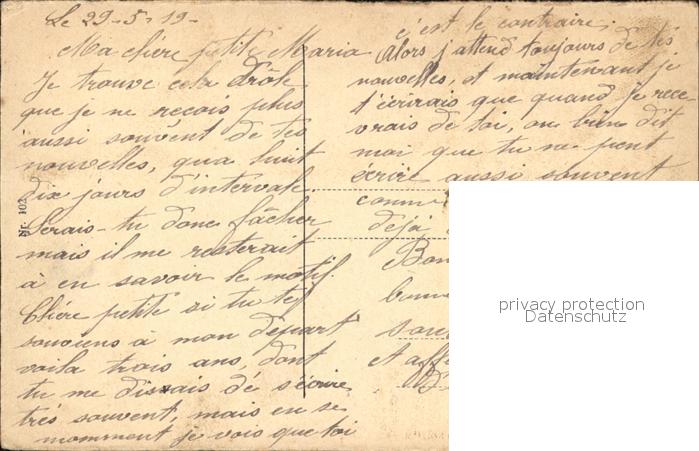 Le 29-5-19-
Ma chère petite Maria
Je trouve cela drôle
que je ne recois plus
aussi souvent de tes
nouvelles, qua huit
dix jours d'intervale.
Serais-tu donc fâcher
mais il me resterait
à en savoir le motif.
Chére petite si tu tes
souviens à mon départ
voila trois ans, dont
tu me disais dé s'écrire
très souvent, mais en se
momment je vois que toi
c'est le contraire,
Alors j'attend toujours de tes
nouvelles, et maintenant je
t'écirais que quand je rece
vrais de toi, ou bien dit
moi que tu ne peut
écrit aussi souvent
comm
déjà
Bon
sou
et affe
Nr. 102
privacy protection
Datenschutz